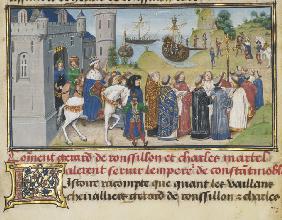 Coment gerard de roussillon et charles martel
alerent seruir lempere de constantinoble
Listoire racompte que quant les vaillans
cheualliers gerard de roussillon & charles